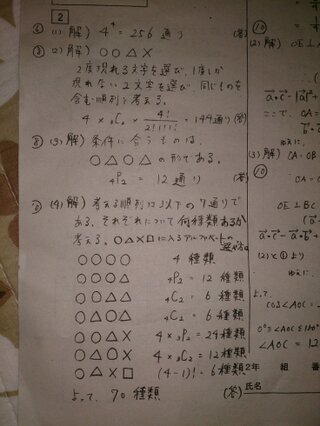 2
⑥ (1) 解) 4⁴ = 256 通り (答)
⑧ (2) 解) ○○△×
2度現れる文字を選び、1度しか
現れない2文字を選び、同じものを
含む順列と考える。
4 × ₃C₂ × 4!/2!1!1! = 144通り (答)
⑧ (3) 解) 条件に合うものは、
○△○△ の形である。
₄P₂ = 12 通り (答)
(4) 解) 考える順列は以下の
ある。それぞれについて何種類あるか
考える。○△×□に入るアルファベットの
○○○○ 4 種類
○○○△ ₄P₂ = 12 種類
○○△△ ₄C₂ = 6 種類
○△○△ ₄C₂ = 6 種類
○○△× 4 × ₃P₂ = 24種類
○△○× 4 × ₃C₂ = 12種類
○△×□ (4-1)! = 6種類
よって、70 種類 (答)
⑩
(2) 解) OE⊥
ここで、
ゆえに、
(3) 解) OA = OB
⑩
OA =
OE⊥BC
(2)と①より
ゆえに
よって、
COS∠AOC =
0°≦∠AOC≦180°
∠AOC = 12
2年 組 番
氏名